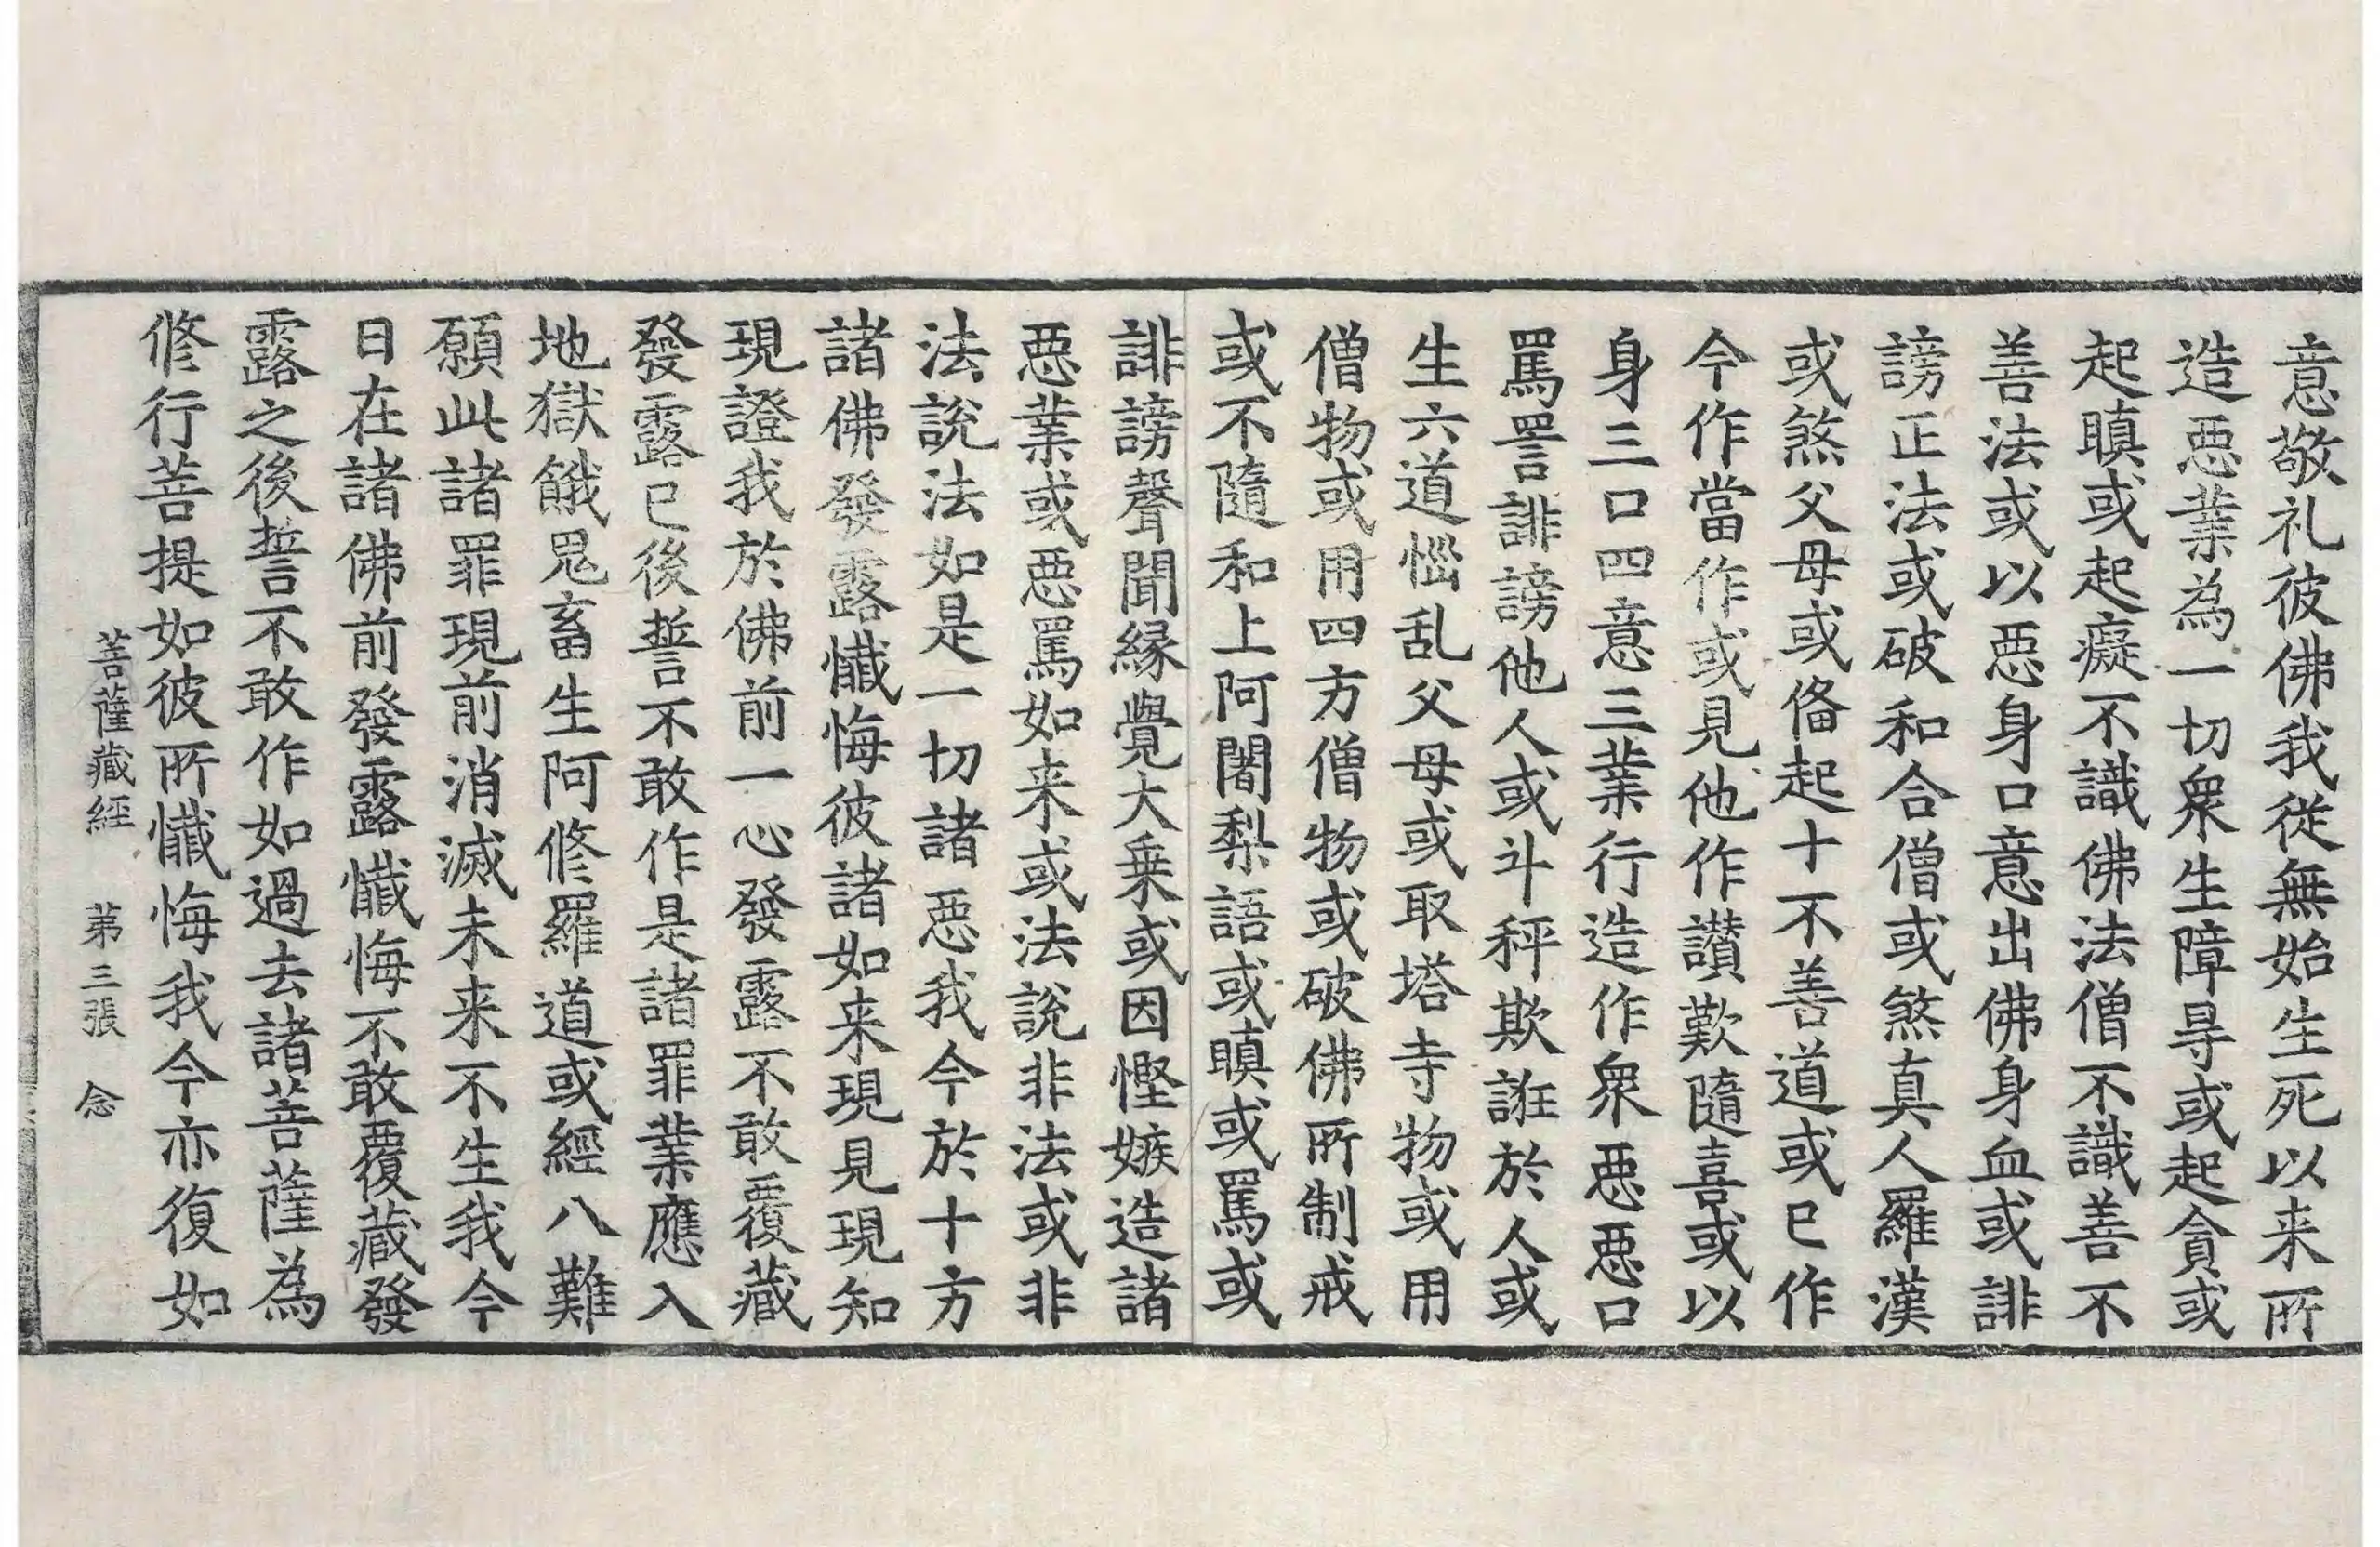 意敬礼彼佛我從無始生死以来所
造惡業為一切衆生障㝵或起貪或
起瞋或起癡不識佛法僧不識善不
善法或以惡身口意出佛身血或誹
謗正法或破和合僧或煞真人羅漢
或煞父母或俻起十不善道或已作
今作當作或見他作讃歎隨喜或以
身三口四意三業行造作衆惡惡口
罵詈誹謗他人或斗秤欺誑於人或
生六道惱乱父母或取塔寺物或用
僧物或用四方僧物或破佛所制戒
或不隨和上阿闍梨語或瞋或罵或
誹謗聲聞緣覺大乗或因慳嫉造諸
惡業或惡罵如来或法說非法或非
法說法如是一切諸惡我今於十方
諸佛發露懺悔彼諸如来現見現知
現證我於佛前一心發露不敢覆藏
發露已後誓不敢作是諸罪業應入
地獄餓鬼畜生阿修羅道或經八難
願此諸罪現前消滅未来不生我今
日在諸佛前發露懺悔不敢覆藏發
露之後誓不敢作如過去諸菩薩為
修行菩提如彼所懺悔我今亦復如
菩薩藏經 第三張 念